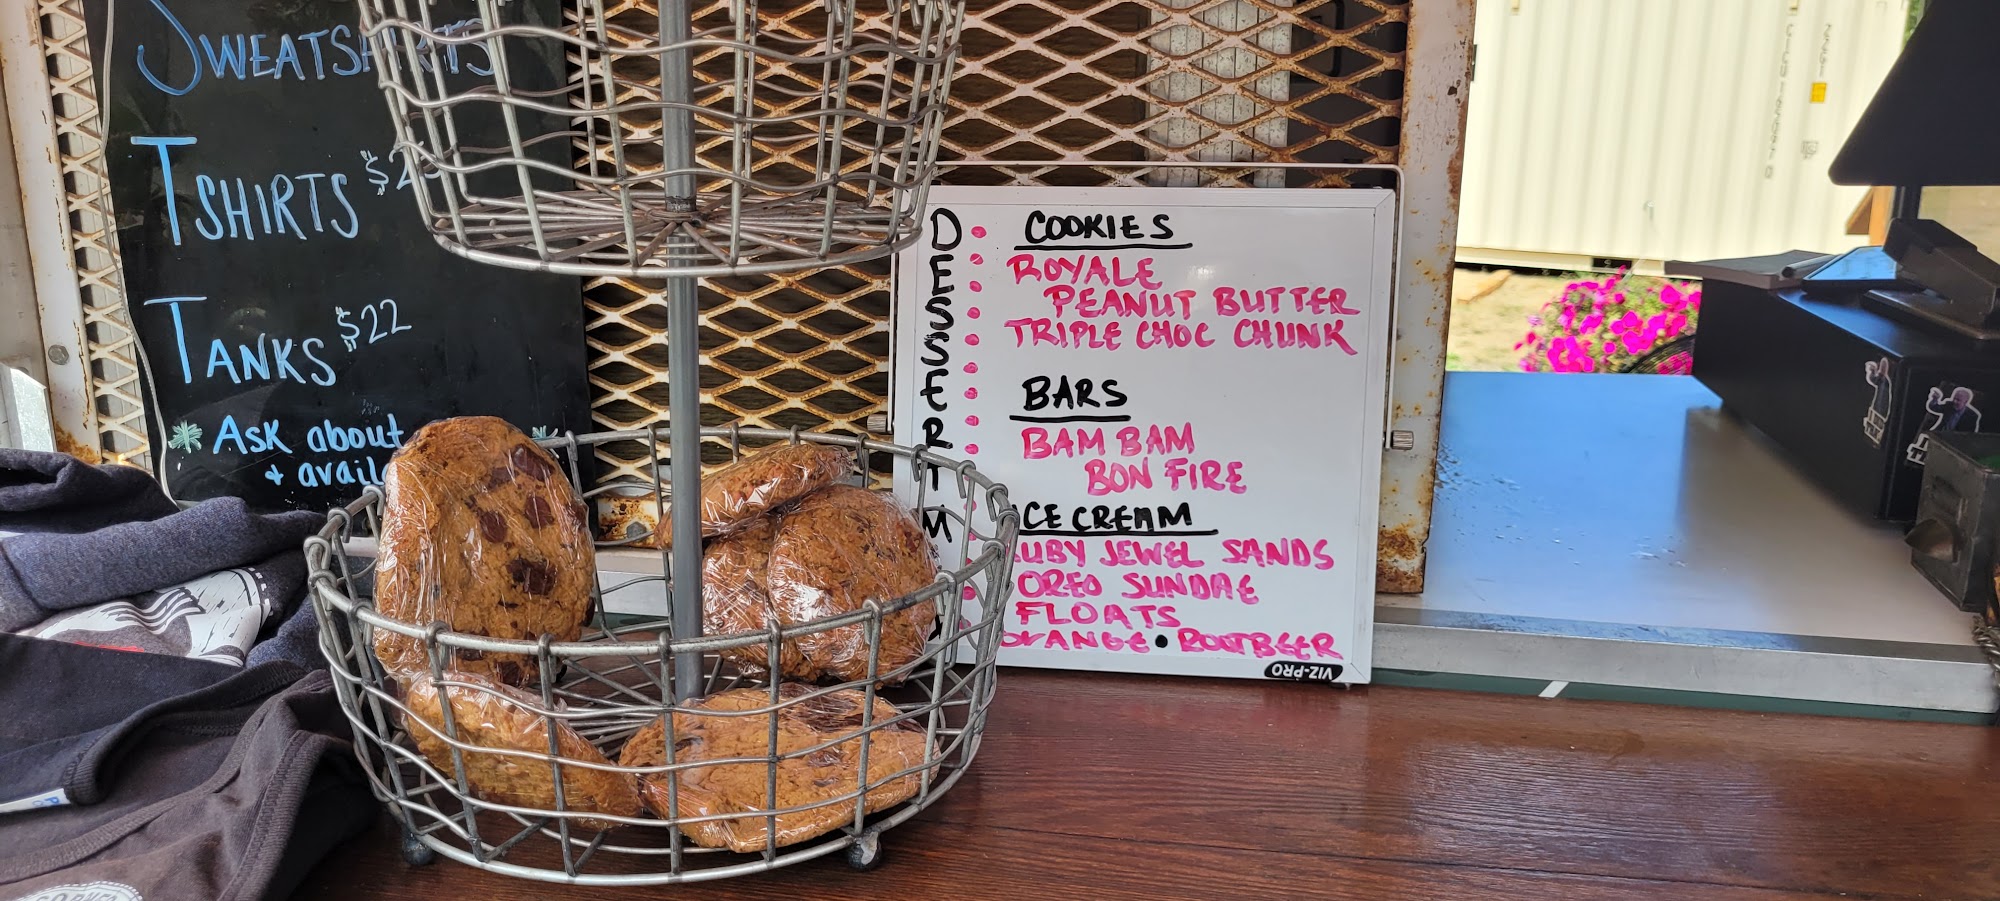 SWEATSHIRTS
TSHIRTS $2
TANKS $22
ASK about
+ availa
DESSERT M
COOKIES
ROYALE
PEANUT BUTTER
TRIPLE CHOC CHUNK
BARS
BAM BAM
BON FIRE
ICE CREAM
RUBY JEWEL SANDS
OREO SUNDAE
FLOATS
ORANGE • ROOTBEER
VIZ-PRO